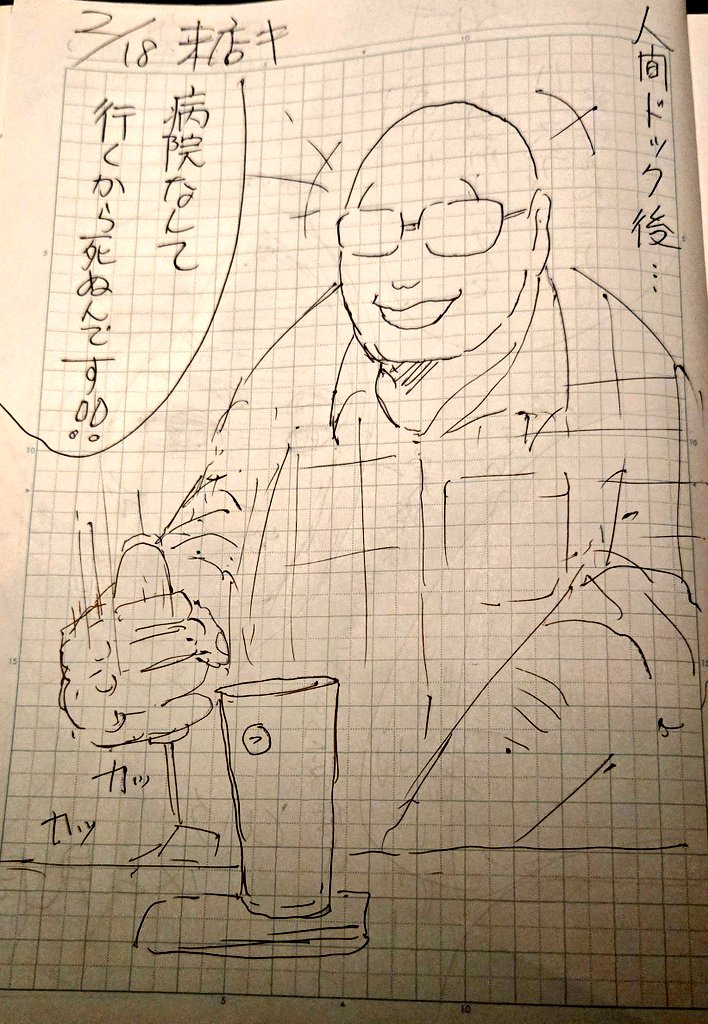 人間ドック後…
2/18 来店キ
病院なんて
行くから死ぬんです!!
カッ
カッ